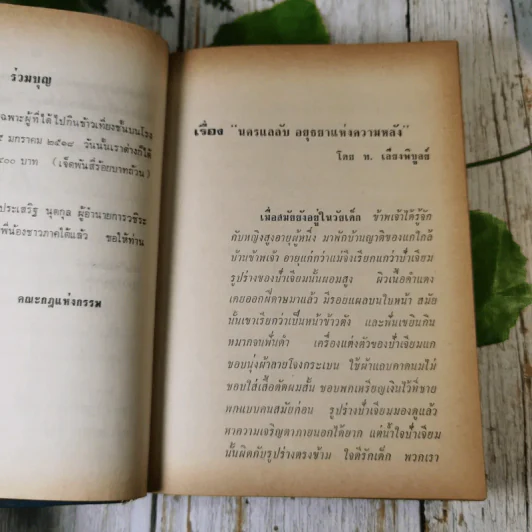 ร่วมบุญ
ฉพาะผู้ที่ได้ไปกินข้าวเที่ยงชั้นบนโรง
มกราคม ๒๕๑๘ วันนั้นเราต่างก็ได้
๔๐๐ บาท (เจ็ดพันสี่ร้อยบาทถ้วน)
ประเสริฐ นุตกุล ผู้อำนวยการวชิระ
พี่น้องชาวภาคใต้แล้ว ขอให้ท่าน
คณะกฎแห่งกรรม
เรื่อง "นครแลลับ อยุธยาแห่งความหลัง"
โดย ท. เลียงพิบูลย์
เมื่อสมัยยังอยู่ในวัยเด็ก ข้าพเจ้าได้รู้จัก
กับหญิงสูงอายุผู้หนึ่ง มาพักบ้านญาติของแกใกล้
บ้านข้าพเจ้า อายุแก่กว่าแม่จึงเรียกแกว่าป้าเจียม
รูปร่างของป้าเจียมนั้นผอมสูง ผิวเนื้อดำแดง
เคยออกฝีดาษมาแล้ว มีรอยแผลบนใบหน้า สมัย
นั้นเขาเรียกว่าเป็นหน้าข้าวตัง และพี่มเขยินกิน
หมากจนฟันดำ เครื่องแต่งตัวของป้าเจียมแก
ชอบนุ่งผ้าลายโจงกระเบน ใช้ผ้าแถบคาดนมไม่
ชอบใส่เสื้อตัดผมสั้น ชอบพกเหรียญเงินไว้ที่ชาย
พกแบบคนสมัยก่อน รูปร่างป้าเจียมมองดูแล้ว
หาความเจริญตาภายนอกได้ยาก แต่น้ำใจป้าเจียม
นั้นผิดกับรูปร่างตรงข้าม ใจดีรักเด็ก พวกเรา